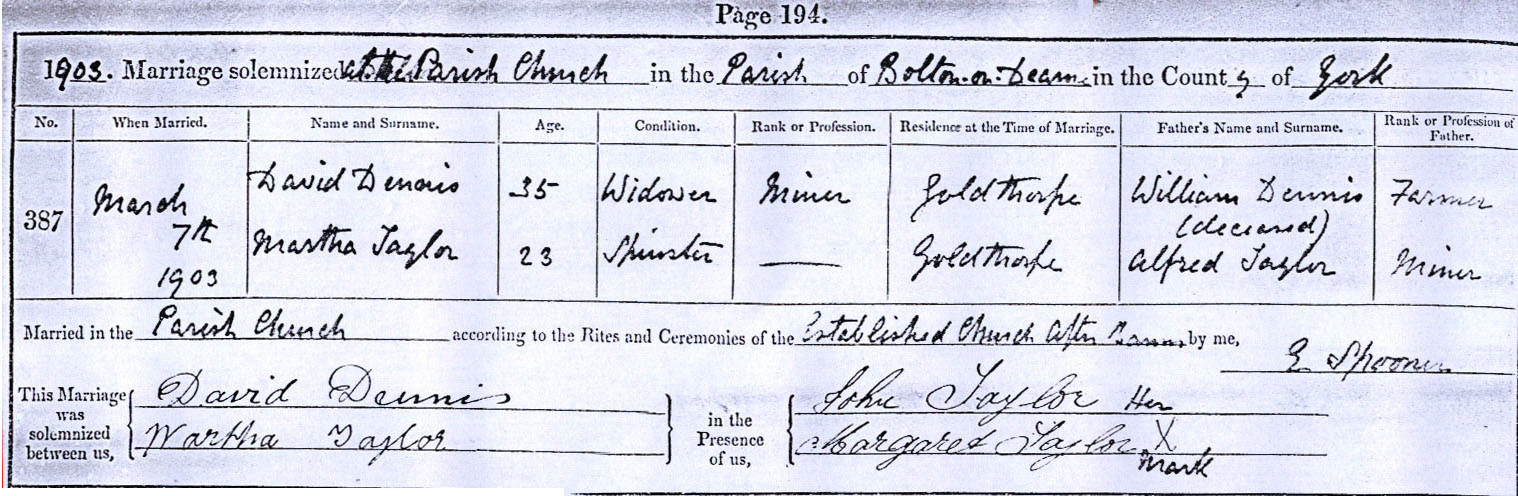 Page 194.
1903. Marriage solemnized at the Parish Church in the Parish of Bolton-on-Dearne in the County of York
No. When Married. Name and Surname. Age. Condition. Rank or Profession. Residence at the Time of Marriage. Father's Name and Surname. Rank or Profession of Father.
387 March 7th 1903 David Dennis 35 Widower Miner Goldthorpe William Dennis (deceased) Farmer
Martha Taylor 23 Spinster —— Goldthorpe Alfred Taylor Miner
Married in the Parish Church according to the Rites and Ceremonies of the Established Church after Banns by me,
E. Spooner
This Marriage was solemnized between us, David Dennis
Martha Taylor
in the Presence of us, John Taylor
Margaret Taylor Her X Mark